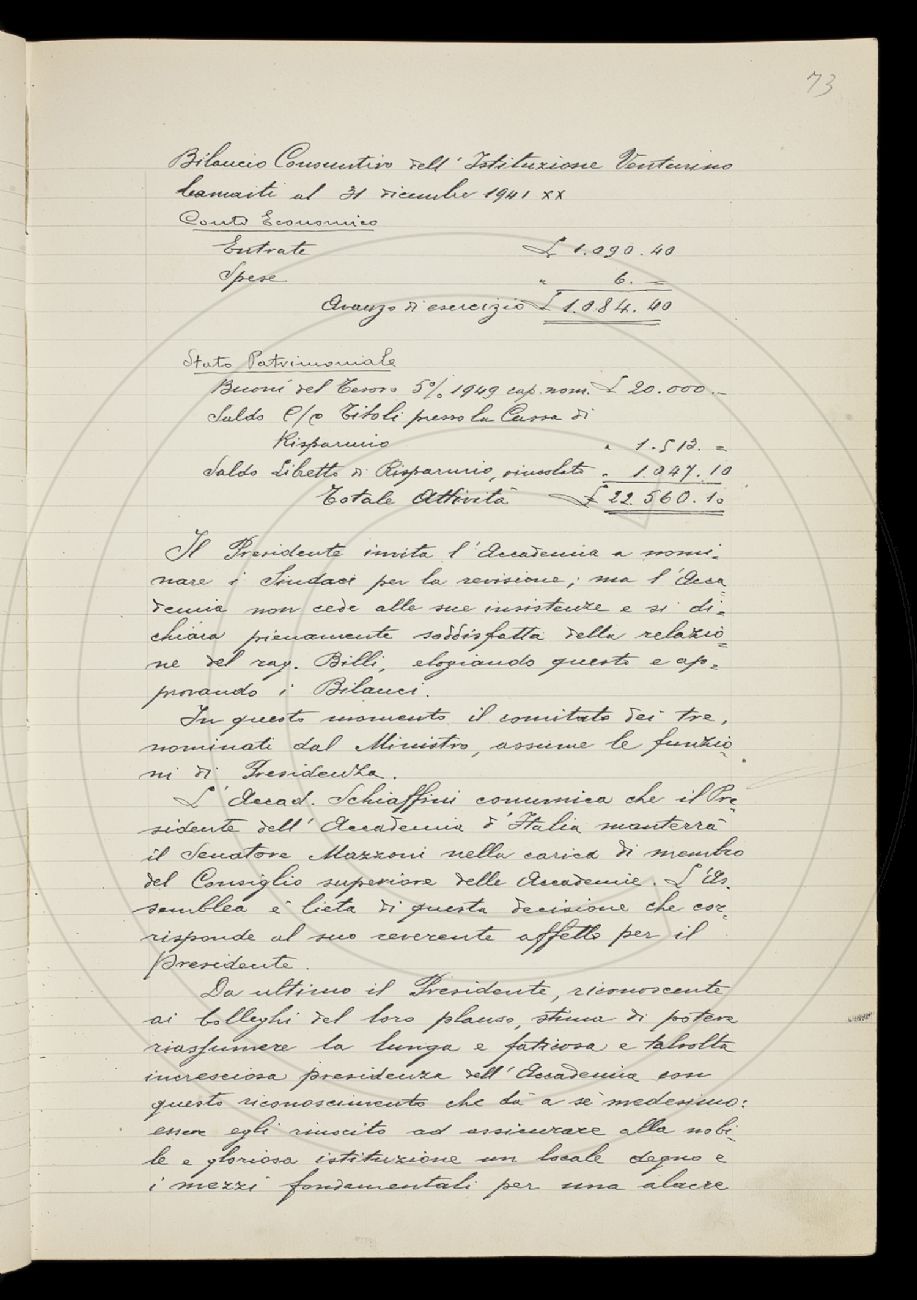 73
Bilancio Consuntivo dell'Istituzione Venturino
Camaiti al 31 dicembre 1941 XX
Conto Economico
Entrate £ 1.090.40
Spese " 6. =
Avanzo di esercizio £ 1.084.40
Stato Patrimoniale
Buoni del Tesoro 5% 1949 cap. nom. £ 20.000.-
Saldo C/c Titoli presso la Cassa di
Risparmio " 1.513. =
Saldo Libretto di Risparmio, vincolato " 1.047.10
Totale Attività £ 22.560.10
Il Presidente invita l'Accademia a nomi=
nare i Sindaci per la revisione; ma l'Acca
demia non cede alle sue insistenze e si di=
chiara pienamente soddisfatta della relazio=
ne del rag. Billi, elogiando questo e ap=
provando i Bilanci.
In questo momento il comitato dei tre,
nominati dal Ministro, assume le funzio
ni di Presidenza.
L'Accad. Schiaffini comunica che il Pre=
sidente dell'Accademia d'Italia manterrà
il Senatore Mazzoni nella carica di membro
del Consiglio superiore delle Accademie. L'As=
semblea è lieta di questa decisione che cor=
risponde al suo reverente affetto per il
Presidente.
Da ultimo il Presidente, riconoscente
ai Colleghi del loro plauso, stima di potere
riassumere la lunga e faticosa e talvolta
incresciosa presidenza dell'Accademia con
questo riconoscimento che dà a sè medesimo:
essere egli riuscito ad assicurare alla nobi=
le e gloriosa istituzione un locale degno e
i mezzi fondamentali per una alacre